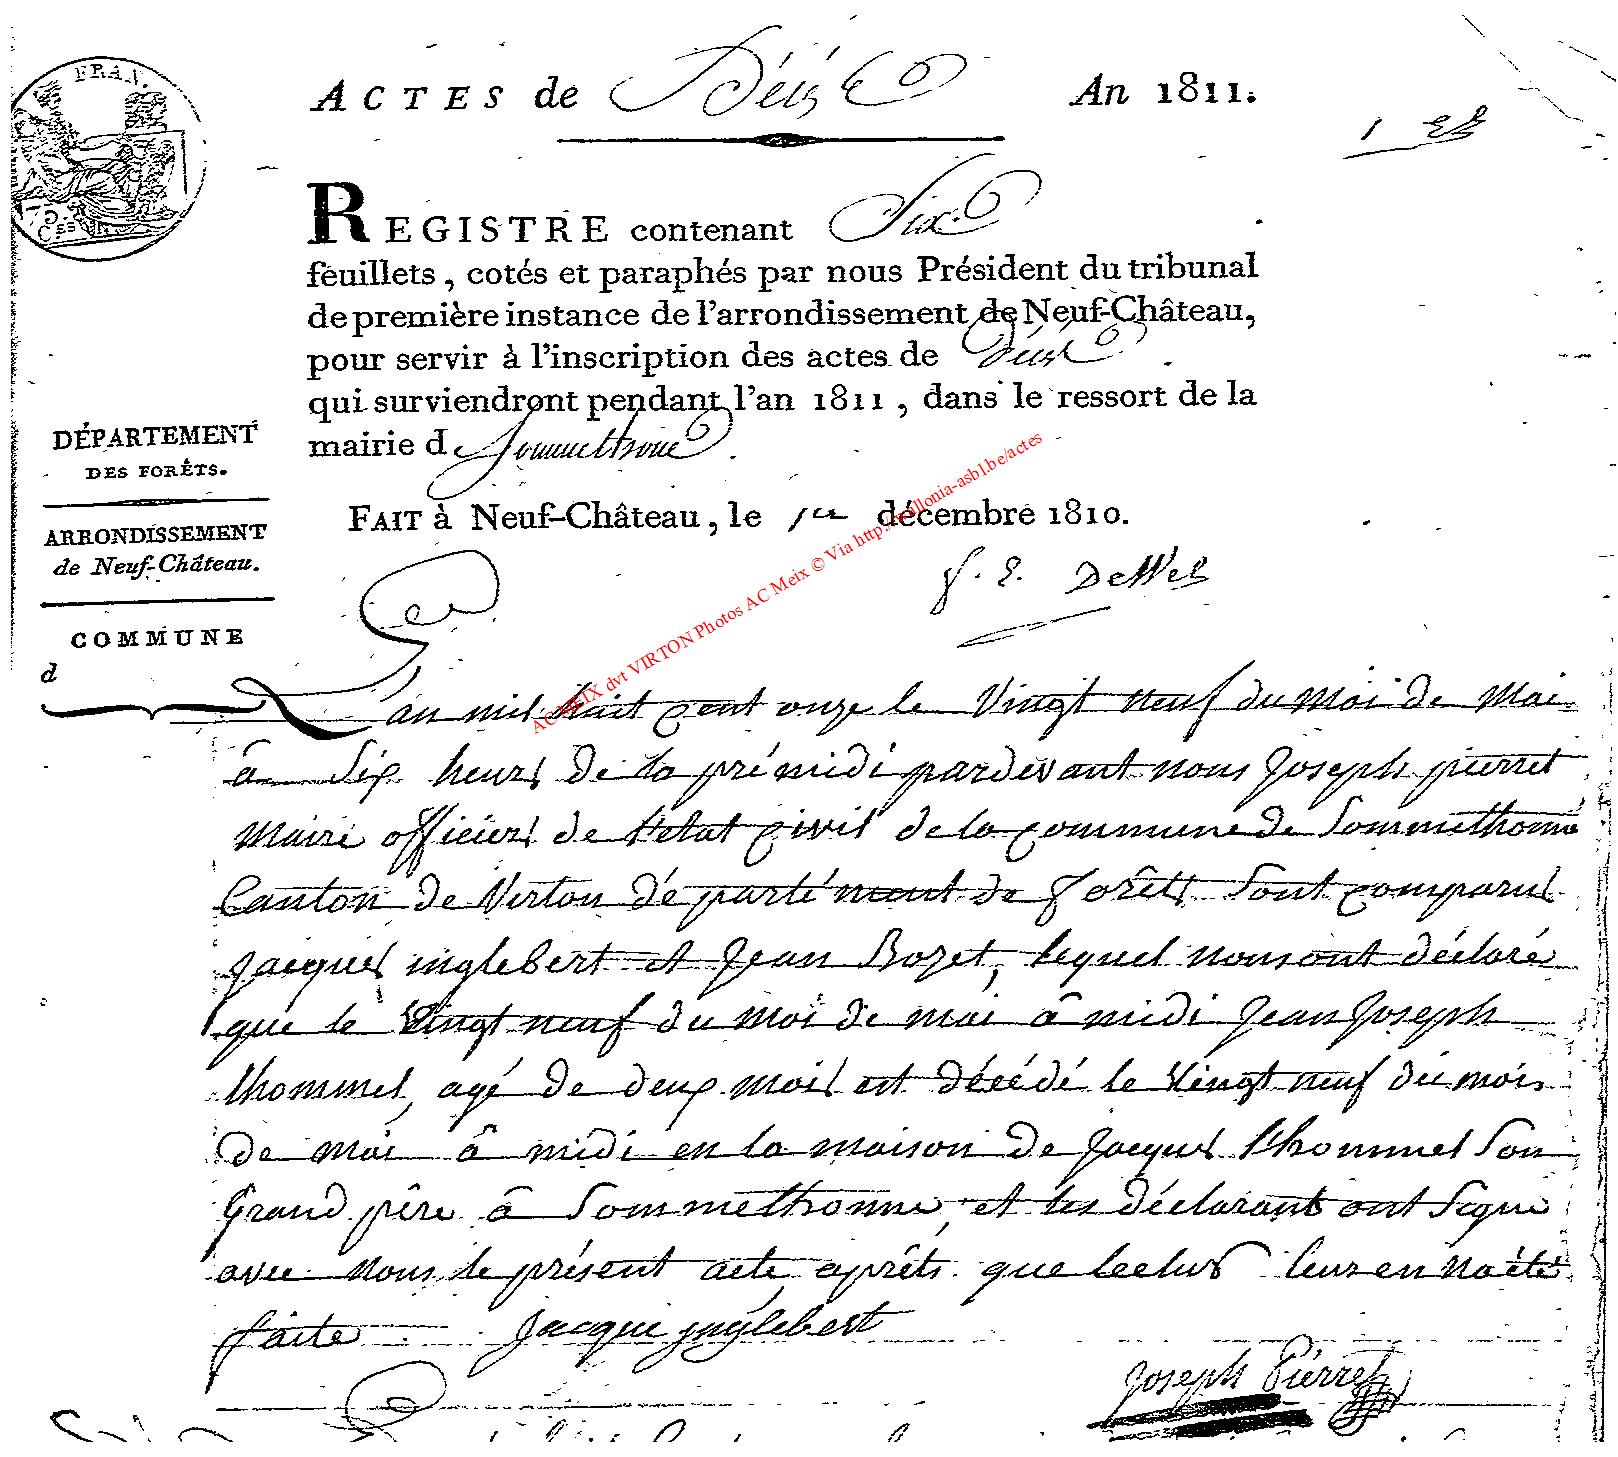 FRAN.
75
Ces
ACTES de Décès An 1811.
1 er
REGISTRE contenant Six
feuillets, cotés et paraphés par nous Président du tribunal
de première instance de l'arrondissement de Neuf-Château,
pour servir à l'inscription des actes de Décès
qui surviendront pendant l'an 1811, dans le ressort de la
mairie de Sommethonne.
FAIT à Neuf-Château, le 1er décembre 1810.
DÉPARTEMENT
DES FORÊTS.
ARRONDISSEMENT
de Neuf-Château.
COMMUNE
d
AC MEIX dvt VIRTON Photos AC Meix © Via http://wallonia-asbl.be/actes
L'an mil huit cent onze le Vingt neuf du moi de Mai
a Six heurs de la prémidi pardevant nous Joseph pierret
Maire officiers de l'etat civil de la commune de Sommethonne
Canton de Virton département de forêts Sont comparus
Jacques inglebert et Jean Rozet, lequel nous ont déclaré
que le Vingt neuf du moi de mai â midi Jean Joseph
lhommel, agé de deux mois est décédé le Vingt neuf du mois
de mai â midi en la maison de Jacques lhommel Son
Grand pêre â Sommethonne, et les déclarant ont Signe
avec nous le présent acte aprêts que lectur leur en na été
faite Jacque jnglebert
Joseph Pierret